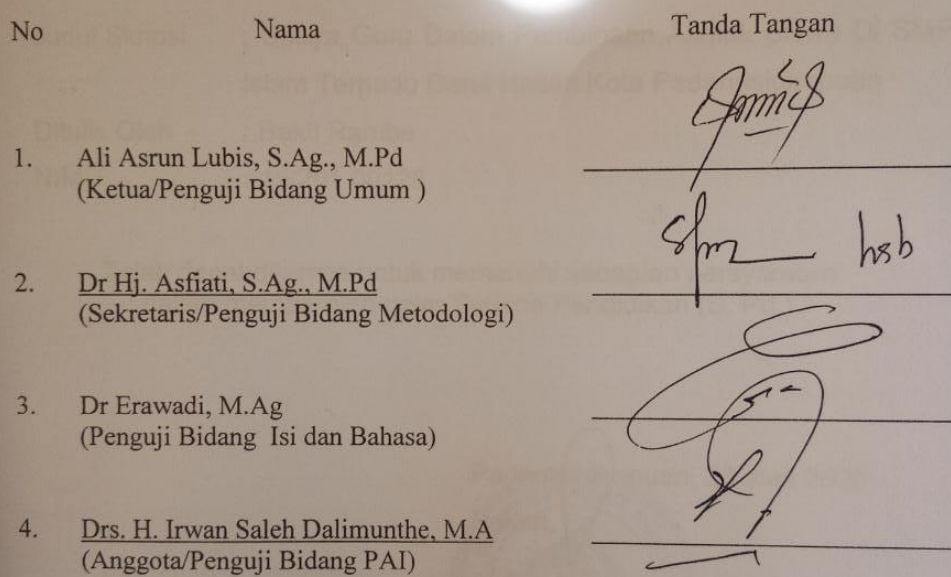 No Nama Tanda Tangan
1. Ali Asrun Lubis, S.Ag., M.Pd
(Ketua/Penguji Bidang Umum )
hsb
2. Dr Hj. Asfiati, S.Ag., M.Pd
(Sekretaris/Penguji Bidang Metodologi)
3. Dr Erawadi, M.Ag
(Penguji Bidang Isi dan Bahasa)
4. Drs. H. Irwan Saleh Dalimunthe, M.A
(Anggota/Penguji Bidang PAI)